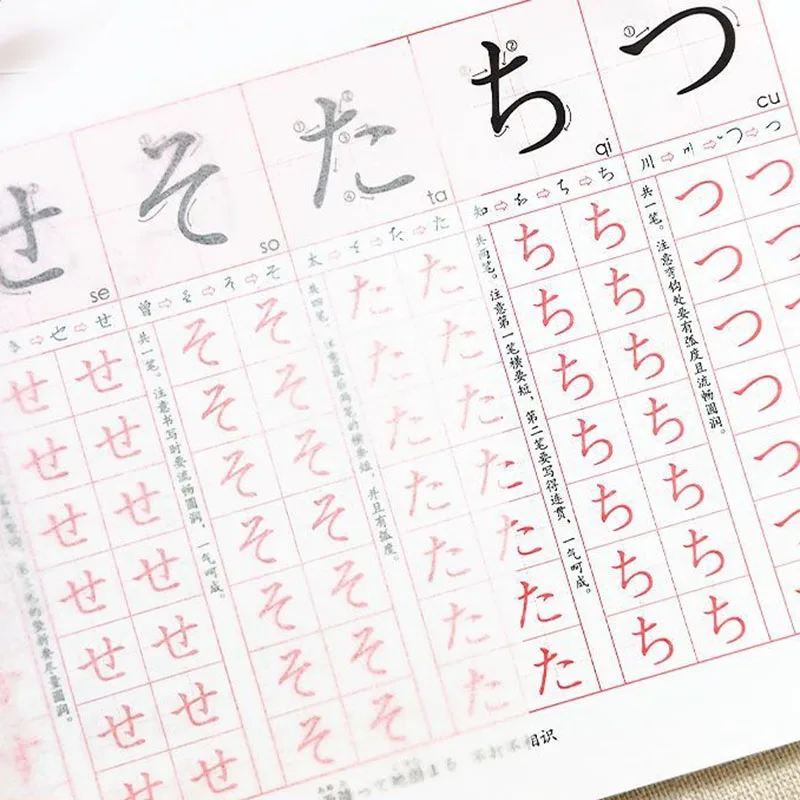 せ そ た ち つ
se so ta qi cu
也⇨せ
曾⇨そ⇨そ⇨そ
太⇨た⇨た⇨た
知⇨ち⇨ち⇨ち
川⇨川⇨つ⇨つ
共一笔。注意书写时要流畅圆润，一气呵成。
共四笔，注意最后两笔的横要短，并且有弧度。
共两笔。注意第一笔横要短，第二笔要写得连贯，一气呵成。
共一笔。注意弯钩处要有弧度且流畅圆润。
せ せ そ そ た た ち ち つ つ
せ せ そ そ た た ち ち つ つ
せ せ そ そ た た ち ち つ
せ せ そ そ た た ち ち つ
せ せ そ そ た た ち ち つ
せ せ そ そ た た ち ち
せ せ そ そ た た ち ち
不打不相识